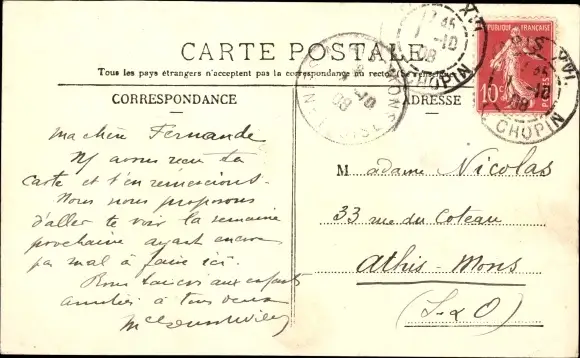 CARTE POSTALE
Tous les pays étrangers n'acceptent pas la correspondance au recto. (Se renseigner
CORRESPONDANCE
ADRESSE
Ma chère Fernande
avons reçu ta
carte et t'en remercions.
Nous nous proposons
d'aller te voir la semaine
prochaine ayant encore
pas mal à faire ici.
Bons baisers aux enfants
amitiés à tous deux
Madame Nicolas
33 rue du Coteau
Athis-Mons
(S-&O)
REPUBLIQUE FRANÇAISE
10c
POSTES
PARIS XVI
CHOPIN
1-10
08
XVI
45
1-10
08
CHOPIN
MONS
OISE
-10
08